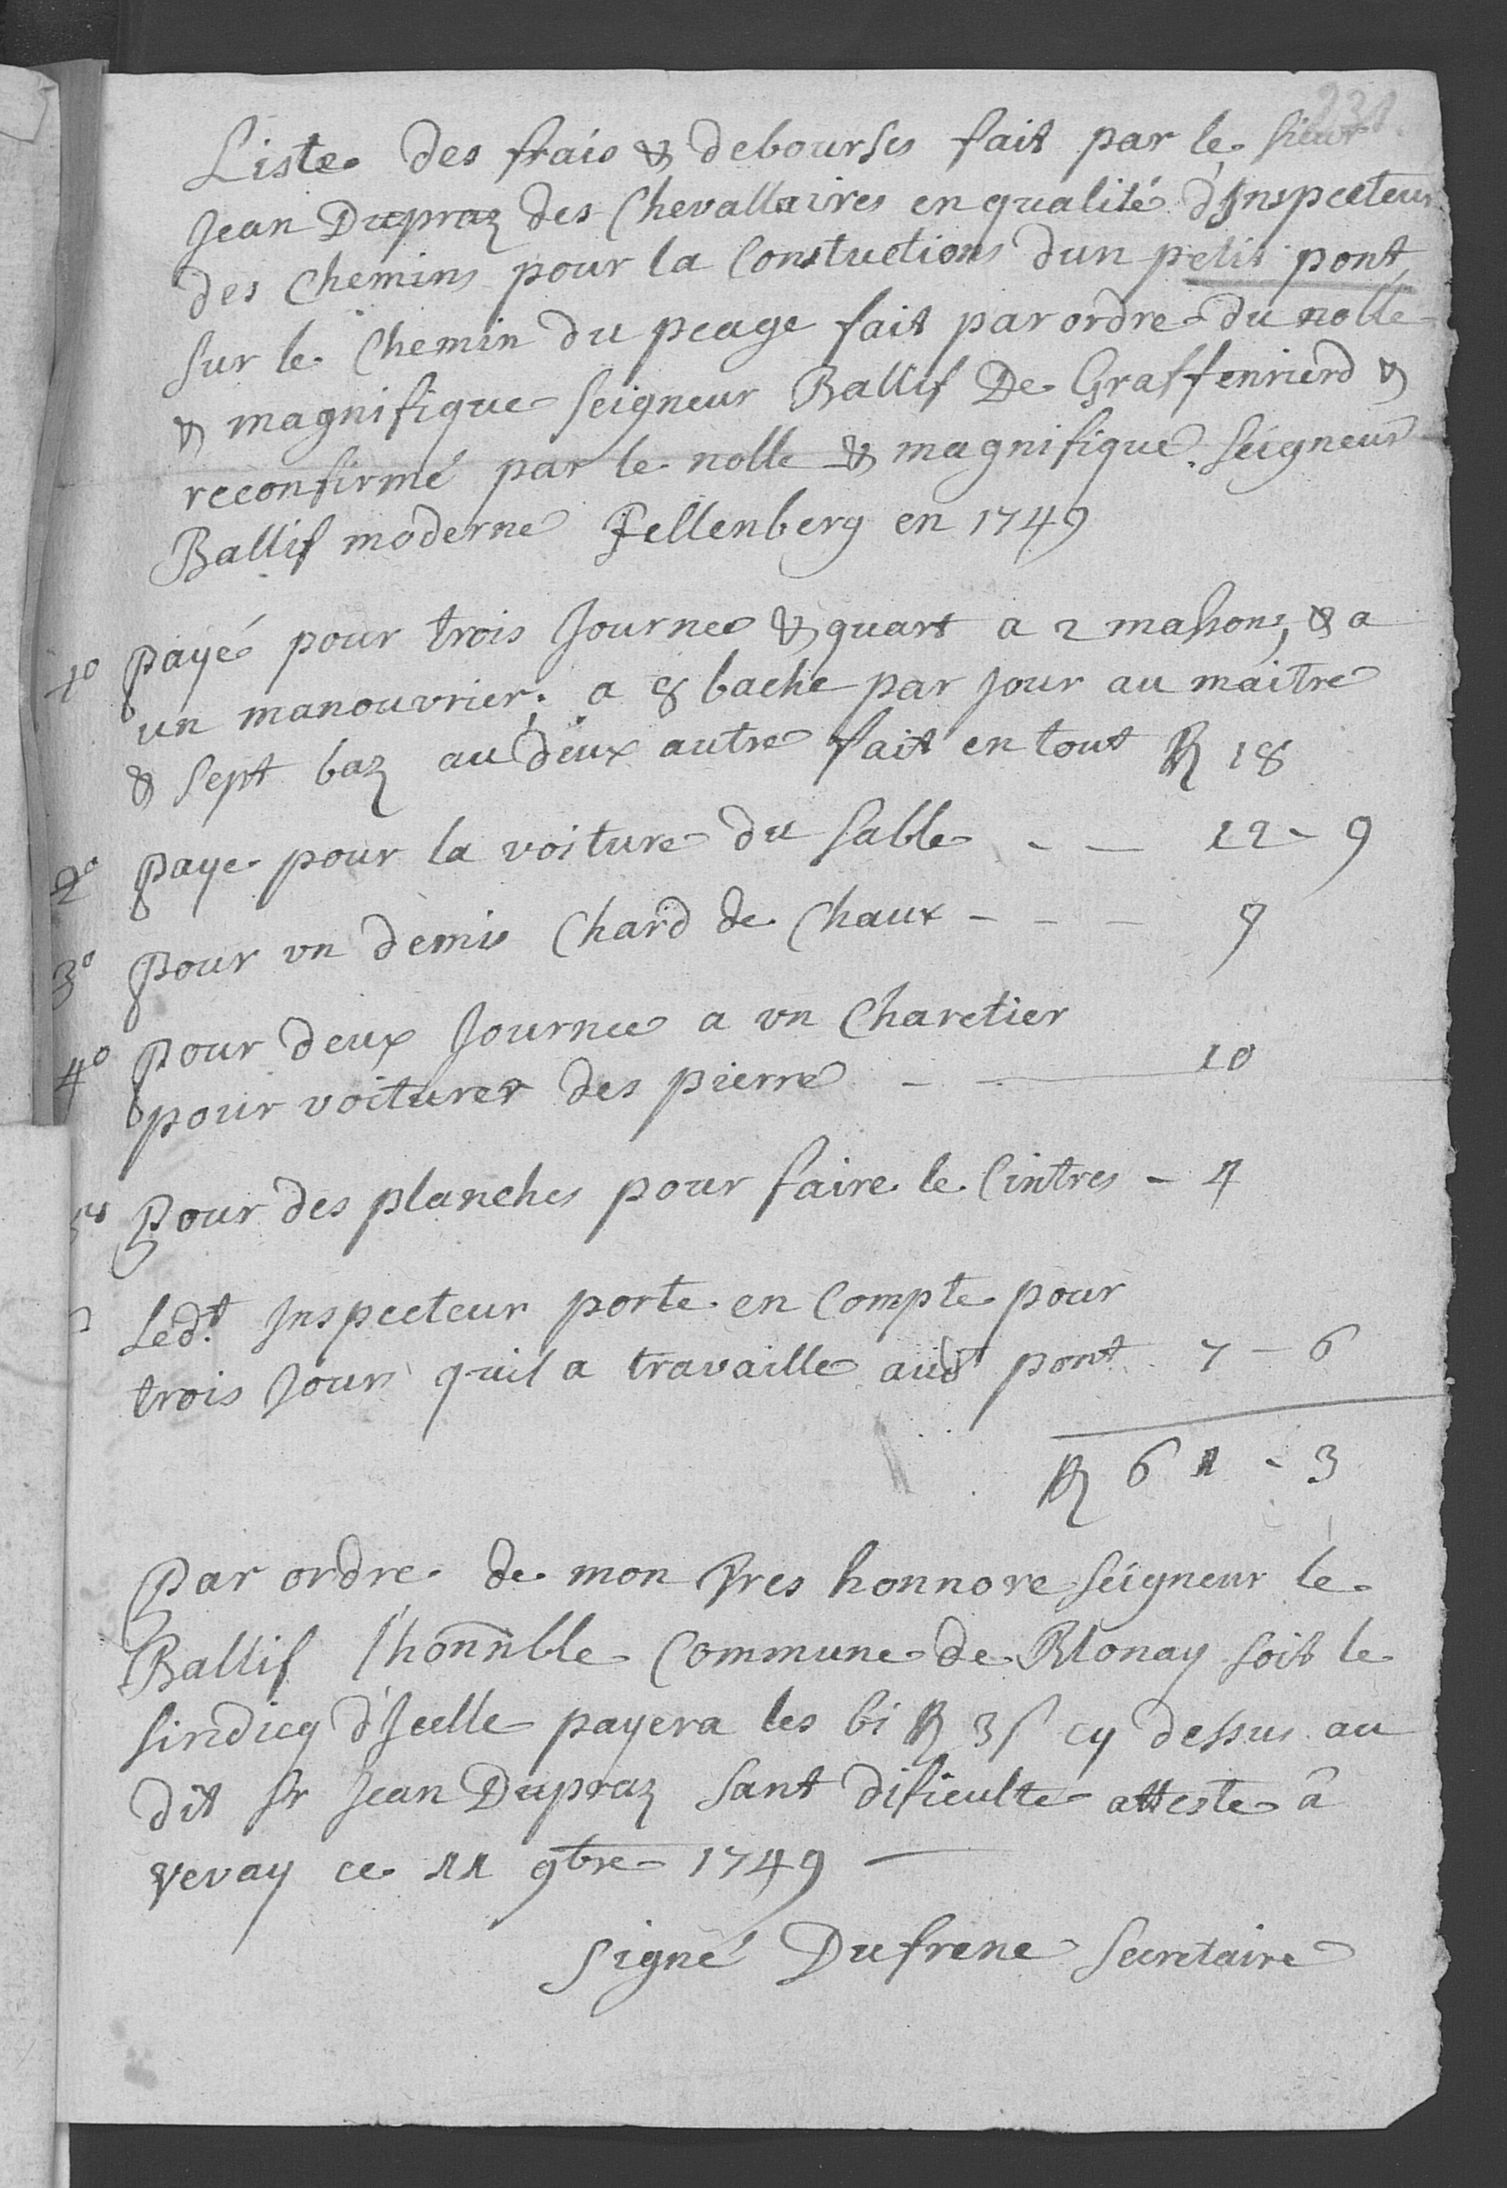 231.
Liste des frais & debourses fait par le sieur
Jean Dupraz des Chevallaires en qualité d'Inspecteur
des Chemins pour la Constuctions dun petit pont
sur le Chemin du peage fait par ordre du nolle
& magnifique seigneur Ballif De Graffenrierd &
reconfirmé par le nolle & magnifique seigneur
Ballif moderne Fellenberg en 1749
1º payé pour trois Journee & quart a 2 massons, & a
un manouvrier; a 8 bache par Jour au maitre
& sept baz au deux autre fait en tout 18
2º paye pour la voiture du sable - — 12 - 9
3º pour un demis Chard de Chaux - - — 9
4º pour deux Journee a un Charetier
pour voiturer des pierre - - — 10
pour des planches pour faire le Cintres - 4
Ledt Inspecteur porte en Compte pour
trois Jours quil a travaille audt pont 7 - 6
61 - 3
Par ordre de mon Tres honnore seigneur le
Ballif l'honnble Commune de Blonay soit le
sindicq d'Icelle payera les 61 3 s cy dessus au
dit sr Jean Dupraz sant dificulte atteste â
Vevay ce 11 9bre 1749 —
Signé Dufrene Secretaire